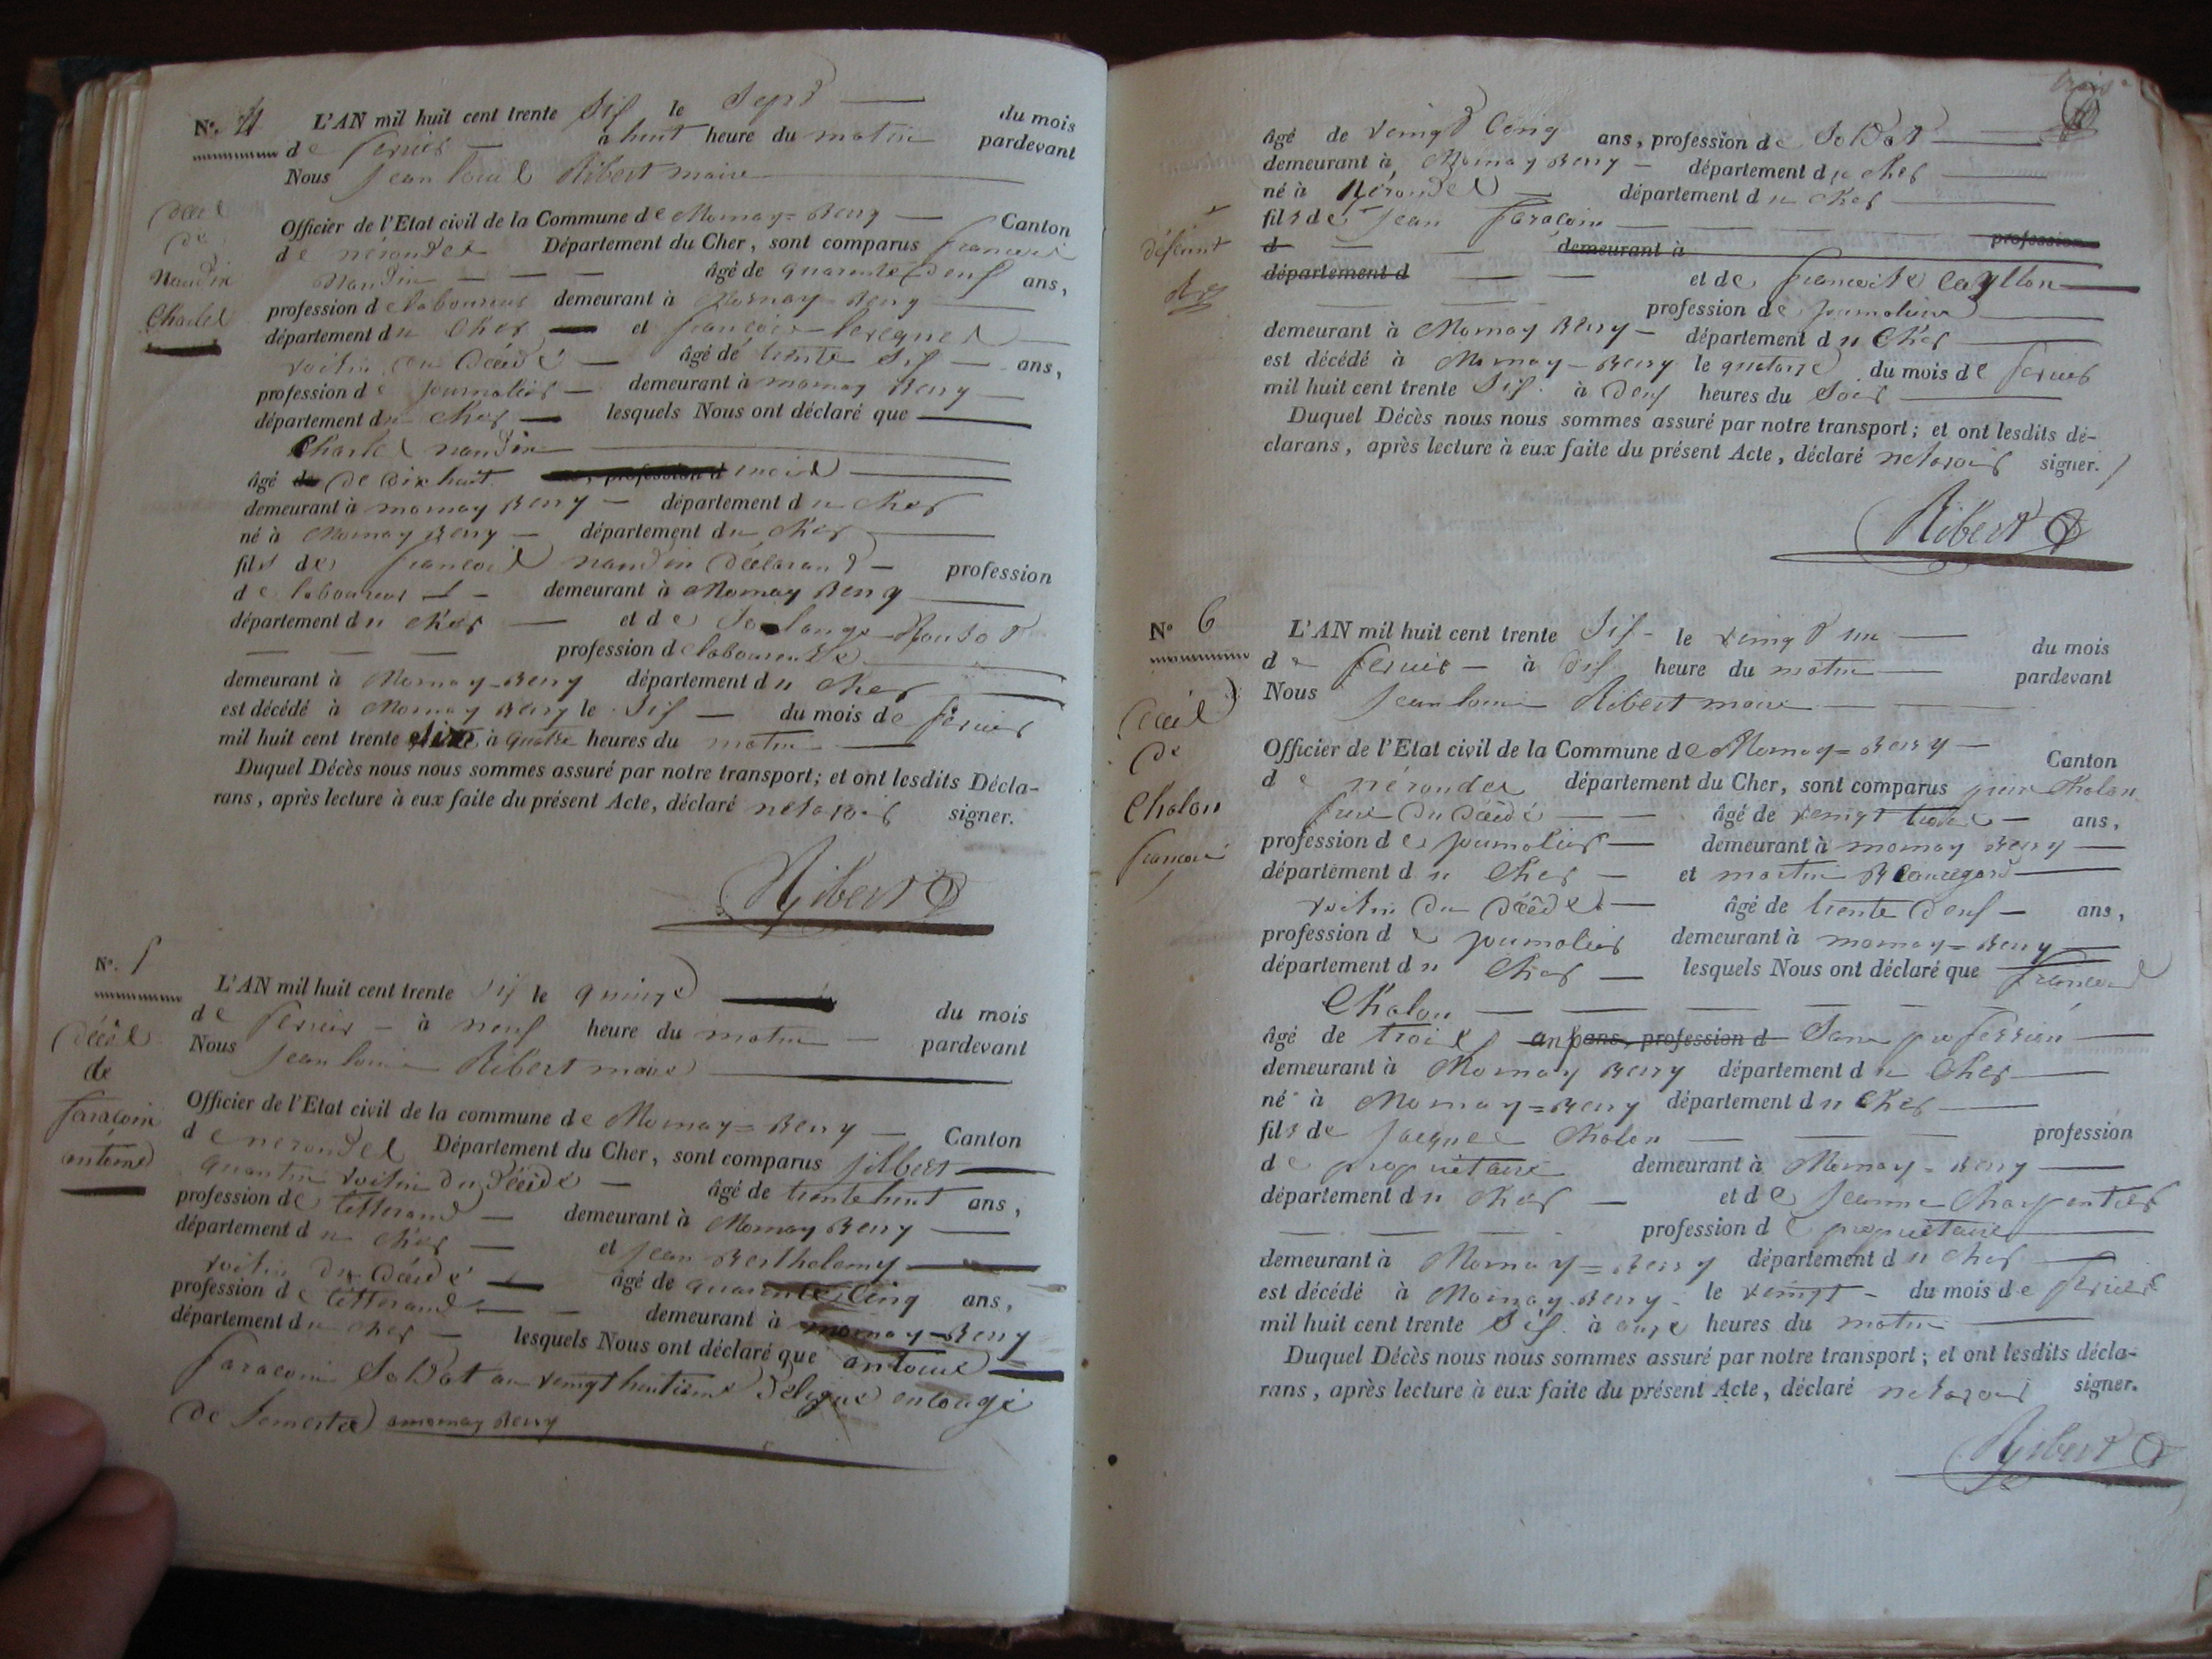 N°. 4 L'AN mil huit cent trente Six le Sept du mois
de fevrier à huit heure du matin pardevant
Nous Jean Louis Ribert maire
Officier de l'Etat civil de la Commune de Mornay=Berry Canton
de nérondes Département du Cher, sont comparus françois
naudin âgé de quarante deux ans,
profession de laboureur demeurant à Mornay-Berry
département du Cher et françois
voisin du décédé âgé de trente Six ans,
profession de journalier demeurant à mornay Berry
département du Cher lesquels Nous ont déclaré que
Charles naudin
âgé de de dix huit ans, profession d mois
demeurant à mornay Berry département du Cher
né à Mornay Berry département du Cher
fils de françois naudin déclarant profession
de laboureur demeurant à Mornay Berry
département du Cher et de Solange
profession de laboureuse
demeurant à Mornay-Berry département du Cher
est décédé à Mornay Berry le Six du mois de fevrier
mil huit cent trente Six à quatre heures du matin
Duquel Décès nous nous sommes assuré par notre transport; et ont lesdits Décla-
rans, après lecture à eux faite du présent Acte, déclaré ne savoir signer.
Ribert
décès
de
Naudin
Charles
N°. 5
L'AN mil huit cent trente Six le quinze du mois
de fevrier à neuf heure du matin pardevant
Nous Jean Louis Ribert maire
Officier de l'Etat civil de la commune de Mornay=Berry Canton
de nérondes Département du Cher, sont comparus Jilbert
quantin voisin du décédé âgé de trente huit ans,
profession de tisserand demeurant à Mornay Berry
département du Cher et Jean Berthelemy
voisin du décédé âgé de quarante Cinq ans,
profession de tisserand demeurant à mornay-Berry
département du Cher lesquels Nous ont déclaré que antoine
faracoin Soldat au vingt huitieme de ligne en congé
de Semestre a mornay Berry
décès
de
faracoin
antoine
âgé de vingt Cinq ans, profession de Soldat
demeurant à Mornay Berry département du Cher
né à Nérondes département du Cher
fils de Jean faracoin profession
d demeurant à
département d et de françoise
profession de journaliere
demeurant à Mornay Berry département du Cher
est décédé à Mornay-Berry le quatorze du mois de fevrier
mil huit cent trente Six à deux heures du Soir
Duquel Décès nous nous sommes assuré par notre transport; et ont lesdits dé-
clarans, après lecture à eux faite du présent Acte, déclaré ne savoir signer.
Ribert
défeunt
N° 6
L'AN mil huit cent trente Six le vingt un du mois
de fevrier à dix heure du matin pardevant
Nous Jean Louis Ribert maire
Officier de l'Etat civil de la Commune de Mornay=Berry Canton
de nérondes département du Cher, sont comparus Cholon
frere du décédé âgé de vingt trois ans,
profession de journalier demeurant à mornay Berry
département du Cher et martin Beauregard
voisin du décédé âgé de trente deux ans,
profession de journalier demeurant à mornay=Berry
département du Cher lesquels Nous ont déclaré que françois
Cholon
âgé de trois ans ans, profession d Sans profession
demeurant à Mornay Berry département du Cher
né à Mornay=Berry département du Cher
fils de Jacques Cholon profession
de propriétaire demeurant à Mornay-Berry
département du Cher et de Jeanne Charpentier
profession de propriétaire
demeurant à Mornay=Berry département du Cher
est décédé à Mornay-Berry le vingt du mois de fevrier
mil huit cent trente Six à onze heures du matin
Duquel Décès nous nous sommes assuré par notre transport; et ont lesdits décla-
rans, après lecture à eux faite du présent Acte, déclaré ne savoir signer.
Ribert
décès
de
Cholon
françois